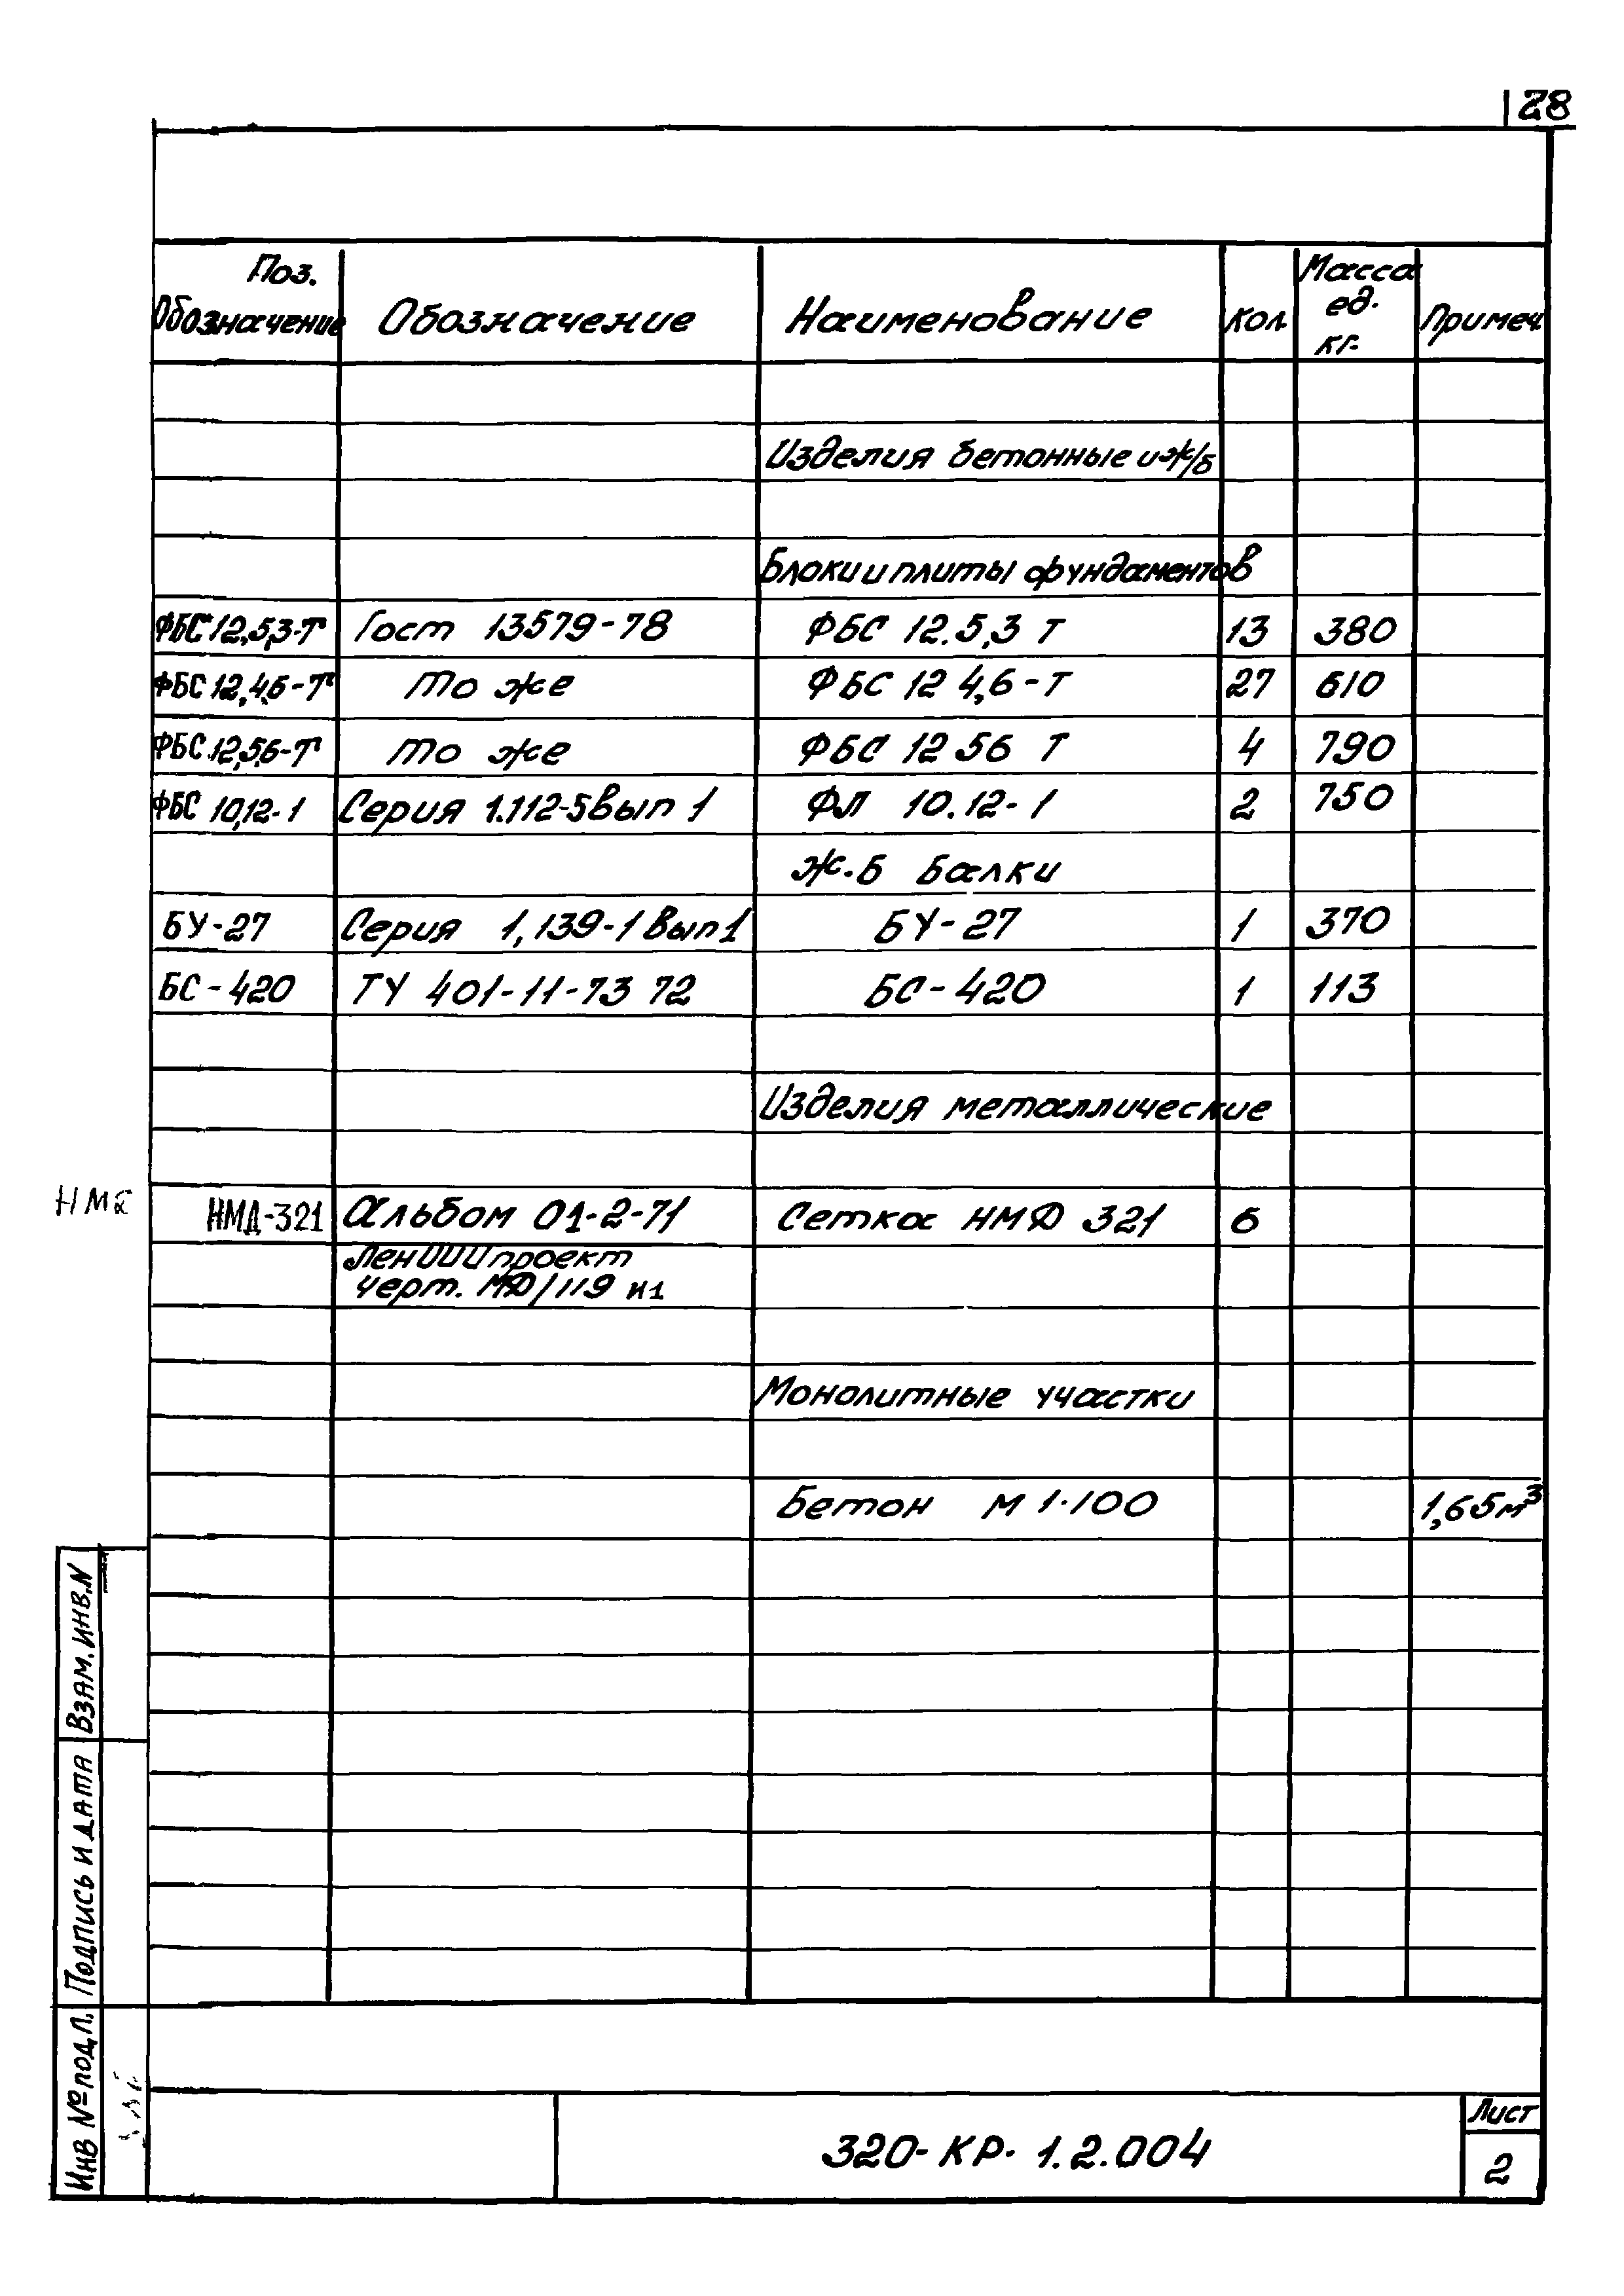 28
Поз. Обозначение Обозначение Наименование Кол. Масса ед. кг. Примеч
Изделия бетонные и ж/б
Блоки и плиты фундаментов
ФБС 12,5,3-Т Гост 13579-78 ФБС 12.5,3 Т 13 380
ФБС 12,4,6-Т То же ФБС 12 4,6-Т 27 610
ФБС 12,5,6-Т То же ФБС 12 56 Т 4 790
ФБС 10,12-1 Серия 1.112-5 вып 1 ФЛ 10.12-1 2 750
Ж.Б Балки
БУ-27 Серия 1,139-1 Вып 1 БУ-27 1 370
БС-420 ТУ 401-11-73 72 БС-420 1 113
Изделия металлические
НМД-321 Альбом 01-2-71 Сетка НМД 321 6
черт. МД/119 и1
Монолитные участки
Бетон М 1.100 1,65м³
Взам. инв. N
Подпись и дата
Инв № подл.
320-КР. 1.2.004
Лист
2